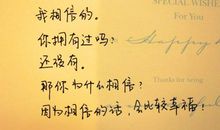 SPECIAL WISHES
For You
我相信的。
你拥有过吗？
还没有。
那你为什么相信？
因为相信的话，会比较幸福！
Happy
Thanks for being